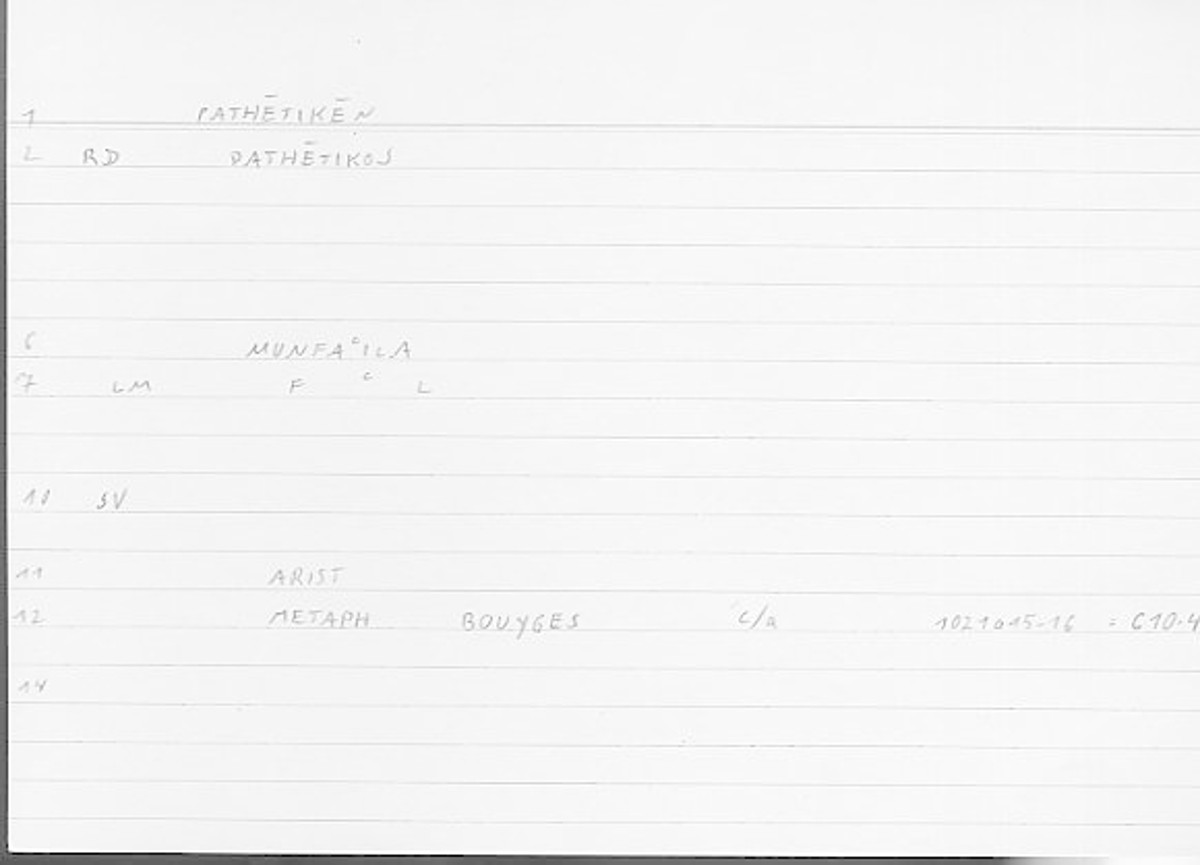 1 PATHĒTIKĒN
2 RD PATHĒTIKOS
6 MUNFAᶜILA
7 LM F ᶜ L
10 SV
11 ARIST
12 METAPH BOUYGES c/a 1021a15-16 = 610.4
14